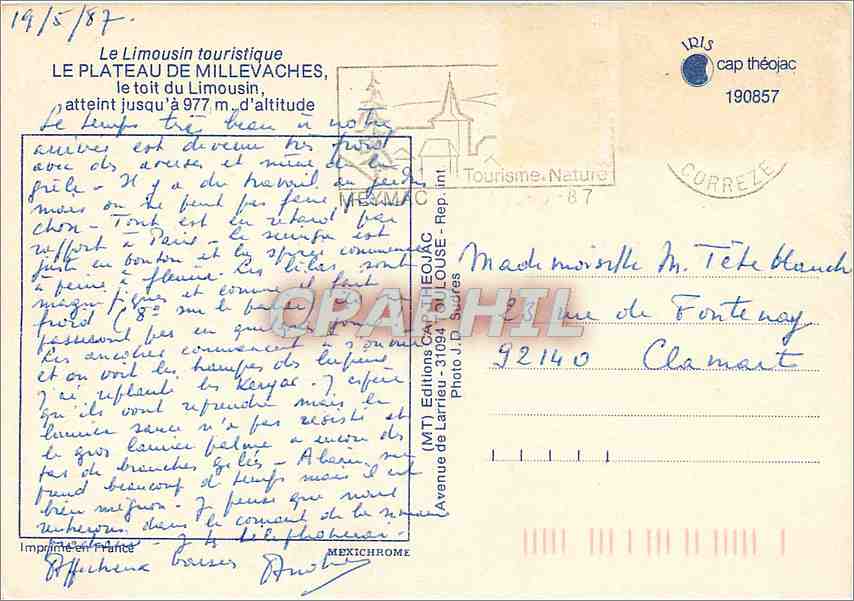 19/5/87.
Le Limousin touristique
LE PLATEAU DE MILLEVACHES,
le toit du Limousin,
atteint jusqu'à 977 m. d'altitude
Le temps très beau à notre
arrivée est devenu très froid
avec des averses et même de la
grêle - Il y a du travail au jardin
mais on ne peut pas faire
chon - Tout est en retard par
rapport à Paris - le seringa est
juste en bouton et la spirée commence
à peine à fleurir. Les lilas sont
magnifiques et comme il fait
froid (8° sur le
passeront pas en quelques jours
Les ancolies commencent à s'ouvrir
et on voit les hampes des lupins
J'ai replanté les Kerrias - J'espère
qu'ils vont reprendre mais le
laurier sauce n'a pas résisté et
le gros laurier palme a encore des
tas de branches gelées -
prend beaucoup de temps mais il est
bien mignon - Je pense que nous
rentrerons dans le courant de la semaine
prochaine - Je te téléphonerai -
Affectueux baisers
Imprimé en France
MEXICHROME
(MT) Editions CAP-THEOJAC
Avenue de Larrieu - 31094 TOULOUSE - Rep. int
Photo J.D. Sudres
MEYMAC
Tourisme Nature
-87
CORREZE
IRIS
cap théojac
190857
Mademoiselle M. Tête blanche
23 rue de Fontenay
92140 Clamart
CPAPHIL